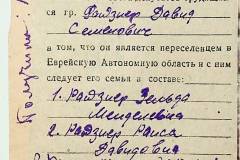 ся гр. Радзиер Давид
Семенович
в том, что он является переселенцем в
Еврейскую Автономную область и с ним
следует его семья в составе:
1. Радзиер Зельда
Менделевна
2. Радзиер Раиса
Давидовна
Получила: